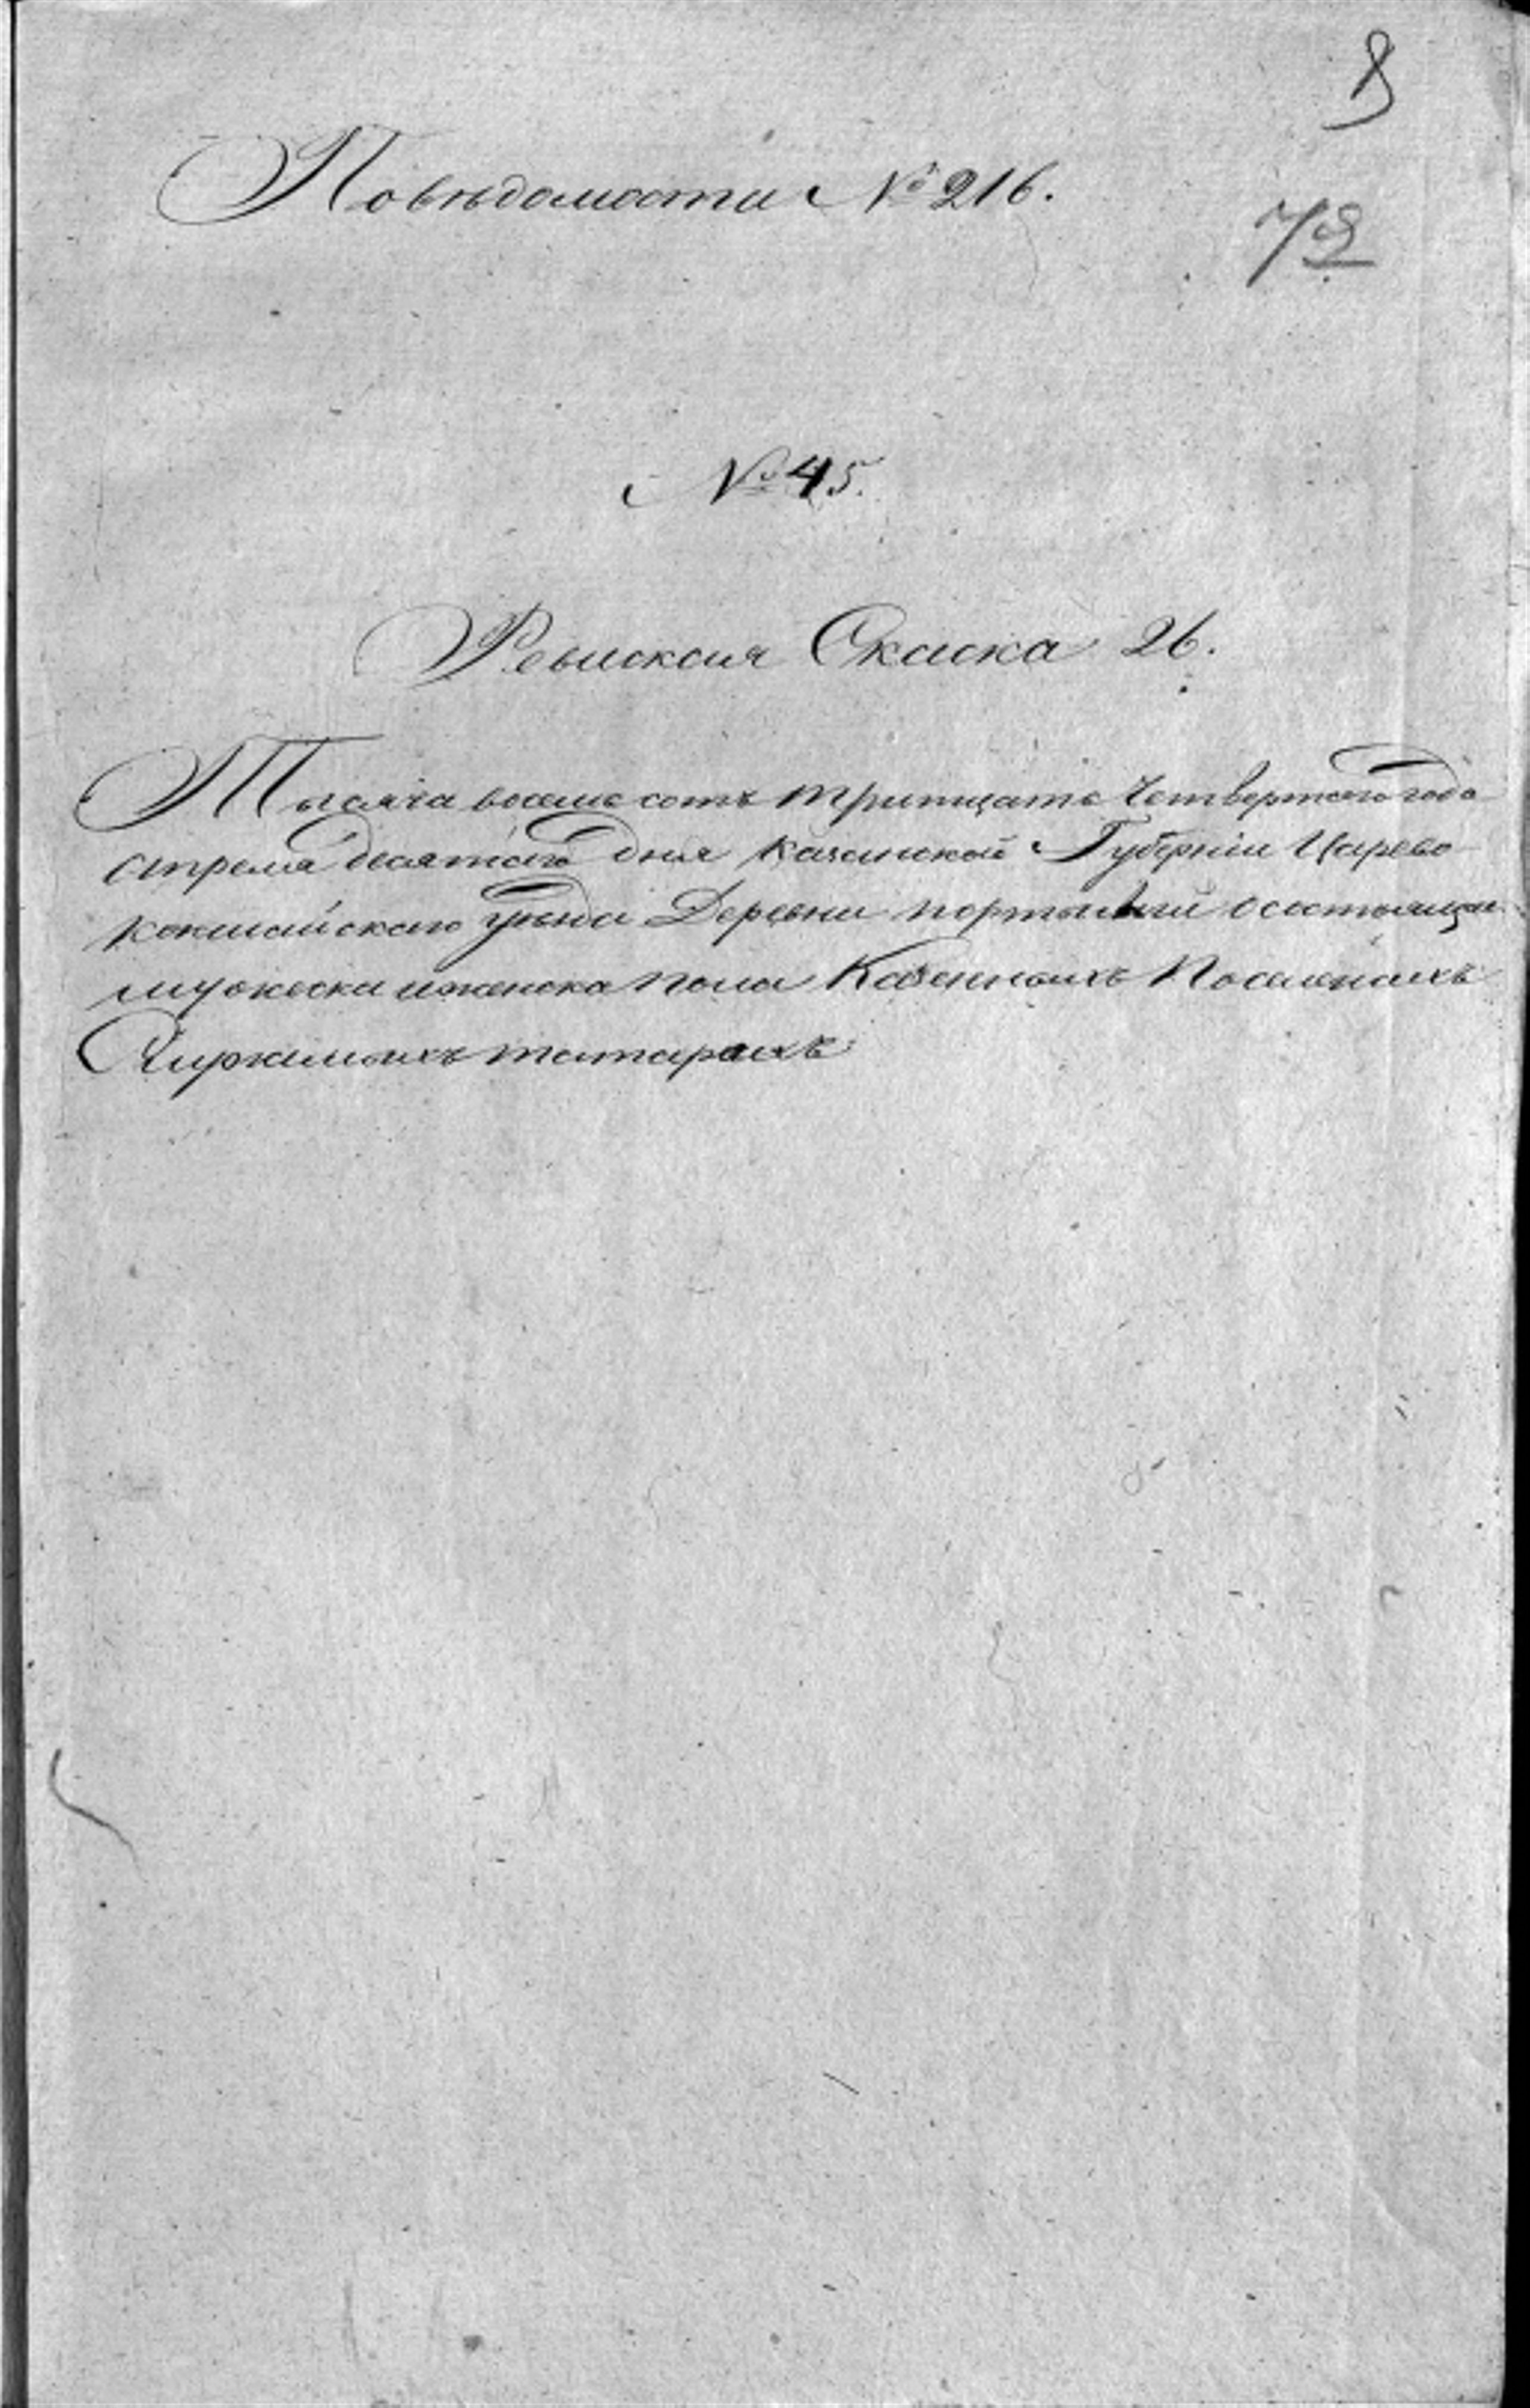 8
Поведомости № 216.
78
№ 45.
Ревиская Скаска 26.
Тысяча восемь сотъ тритцать Четвертого года
апреля десятого дня казанской Губернiи Царево
кокшайского уезда Деревни портянъй осостоящи
мужеска иженска пола Казенныхъ Поселеныхъ
татарахъ